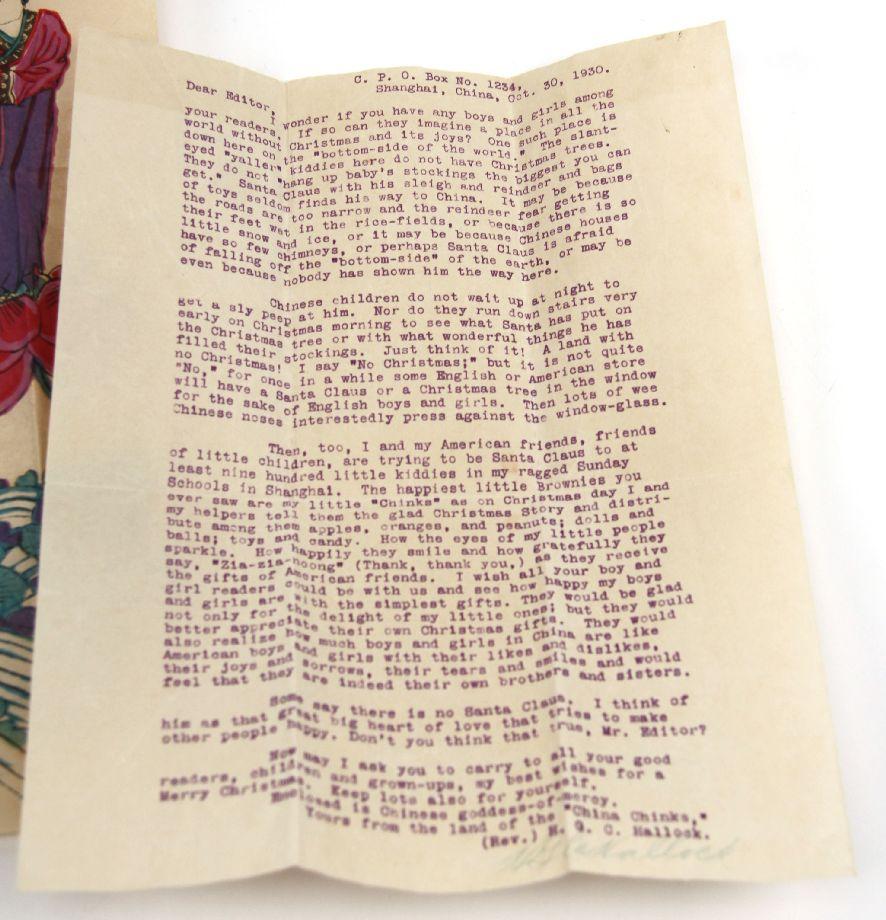 C. P. O. Box No. 1234,
Shanghai, China, Oct. 30, 1930.
Dear Editor,
I wonder if you have any boys and girls among
your readers. If so can they imagine a place in all the
world without Christmas and its joys? One such place is
down here on the "bottom-side of the world." The slant-
eyed "yaller" kiddies here do not have Christmas trees.
They do not "hang up baby's stockings the biggest you can
get." Santa Claus with his sleigh and reindeer and bags
of toys seldom finds his way to China. It may be because
the roads are too narrow and the reindeer fear getting
their feet wet in the rice-fields, or because there is so
little snow and ice, or it may be because Chinese houses
have so few chimneys, or perhaps Santa Claus is afraid
of falling off the "bottom-side" of the earth, or may be
even because nobody has shown him the way here.
Chinese children do not wait up at night to
get a sly peep at him. Nor do they run down stairs very
early on Christmas morning to see what Santa has put on
the Christmas tree or with what wonderful things he has
filled their stockings. Just think of it! A land with
no Christmas! I say "No Christmas;" but it is not quite
"No," for once in a while some English or American store
will have a Santa Claus or a Christmas tree in the window
for the sake of English boys and girls. Then lots of wee
Chinese noses interestedly press against the window-glass.
Then, too, I and my American friends, friends
of little children, are trying to be Santa Claus to at
least nine hundred little kiddies in my ragged Sunday
Schools in Shanghai. The happiest little Brownies you
ever saw are my little "Chinks" as on Christmas day I and
my helpers tell them the glad Christmas Story and distri-
bute among them apples, oranges, and peanuts; dolls and
balls; toys and candy. How the eyes of my little people
sparkle. How happily they smile and how gratefully they
say, "Zia-zia-noong" (Thank, thank you,) as they receive
the gifts of American friends. I wish all your boy and
girl readers could be with us and see how happy my boys
and girls are with the simplest gifts. They would be glad
not only for the delight of my little ones; but they would
better appreciate their own Christmas gifts. They would
also realize how much boys and girls in China are like
American boys and girls with their likes and dislikes,
their joys and sorrows, their tears and smiles and would
feel that they are indeed their own brothers and sisters.
Some say there is no Santa Claus. I think of
him as that great big heart of love that tries to make
other people happy. Don't you think that true, Mr. Editor?
Now may I ask you to carry to all your good
readers, children and grown-ups, my best wishes for a
Merry Christmas. Keep lots also for yourself.
Enclosed is Chinese goddess-of-mercy.
Yours from the land of the "China Chinks,"
(Rev.) H. G. C. Hallock.
H G C Hallock